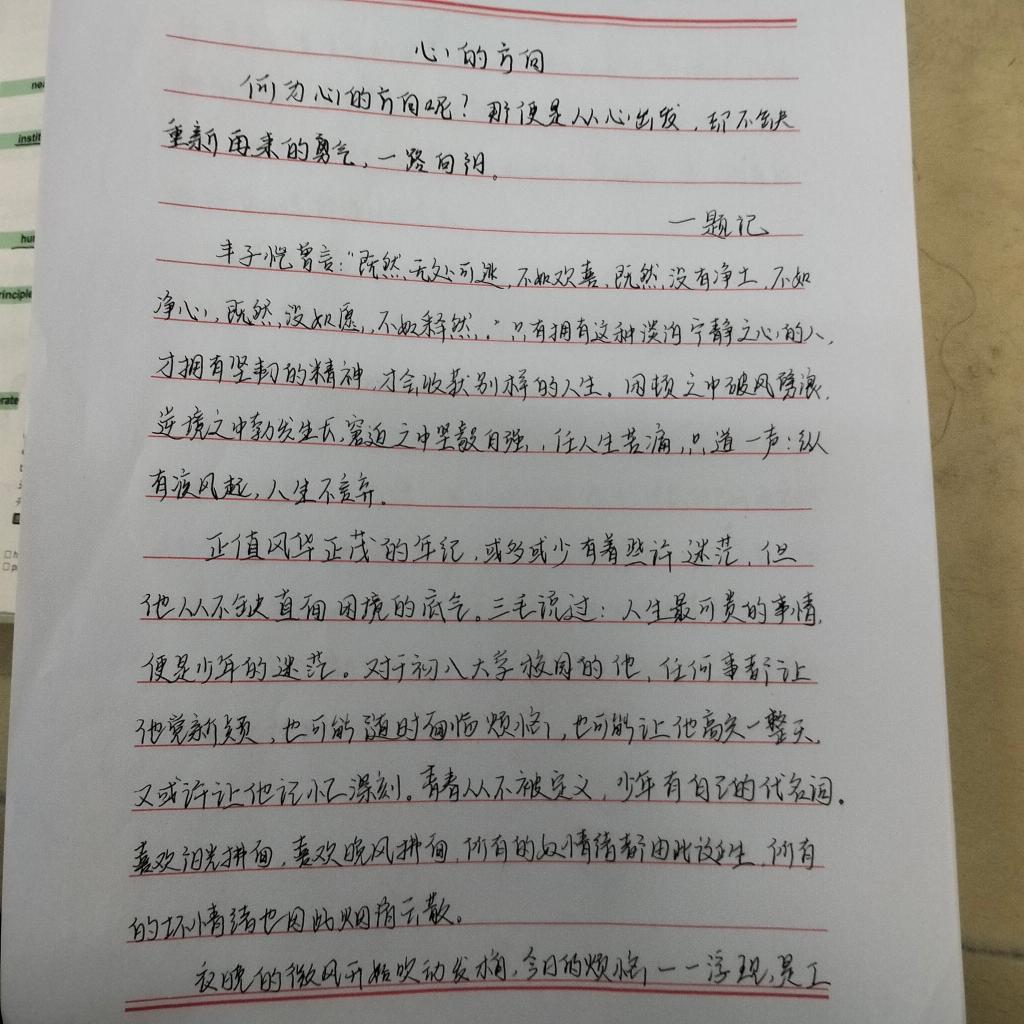 心的方向
何为心的方向呢？那便是从心出发，却不缺
重新再来的勇气，一路向阳。
一题记
丰子恺曾言："既然无处可逃，不如欢喜，既然没有净土，不如
净心，既然没如愿，不如释然。"只有拥有这种淡泊宁静之心的人，
才拥有坚韧的精神，才会收获别样的人生。困顿之中破风劈浪，
逆境之中勃发生长，窘迫之中坚毅自强，任人生苦痛，只道一声：纵
有疾风起，人生不言弃。
正值风华正茂的年纪，或多或少有着些许迷茫，但
他从不缺直面困境的底气。三毛说过：人生最可贵的事情，
便是少年的迷茫。对于初入大学校园的他，任何事都让
他觉新颖，也可能随时面临烦恼，也可能让他高兴一整天，
又或许让他记忆深刻。青春从不被定义，少年有自己的代名词。
喜欢阳光拂面，喜欢晚风拂面，所有的好情绪都由此诞生，所有
的坏情绪也因此烟消云散。
夜晚的微风开始吹动发梢，今日的烦恼一一浮现，是工
nea
instit
hur
rinciple
erate